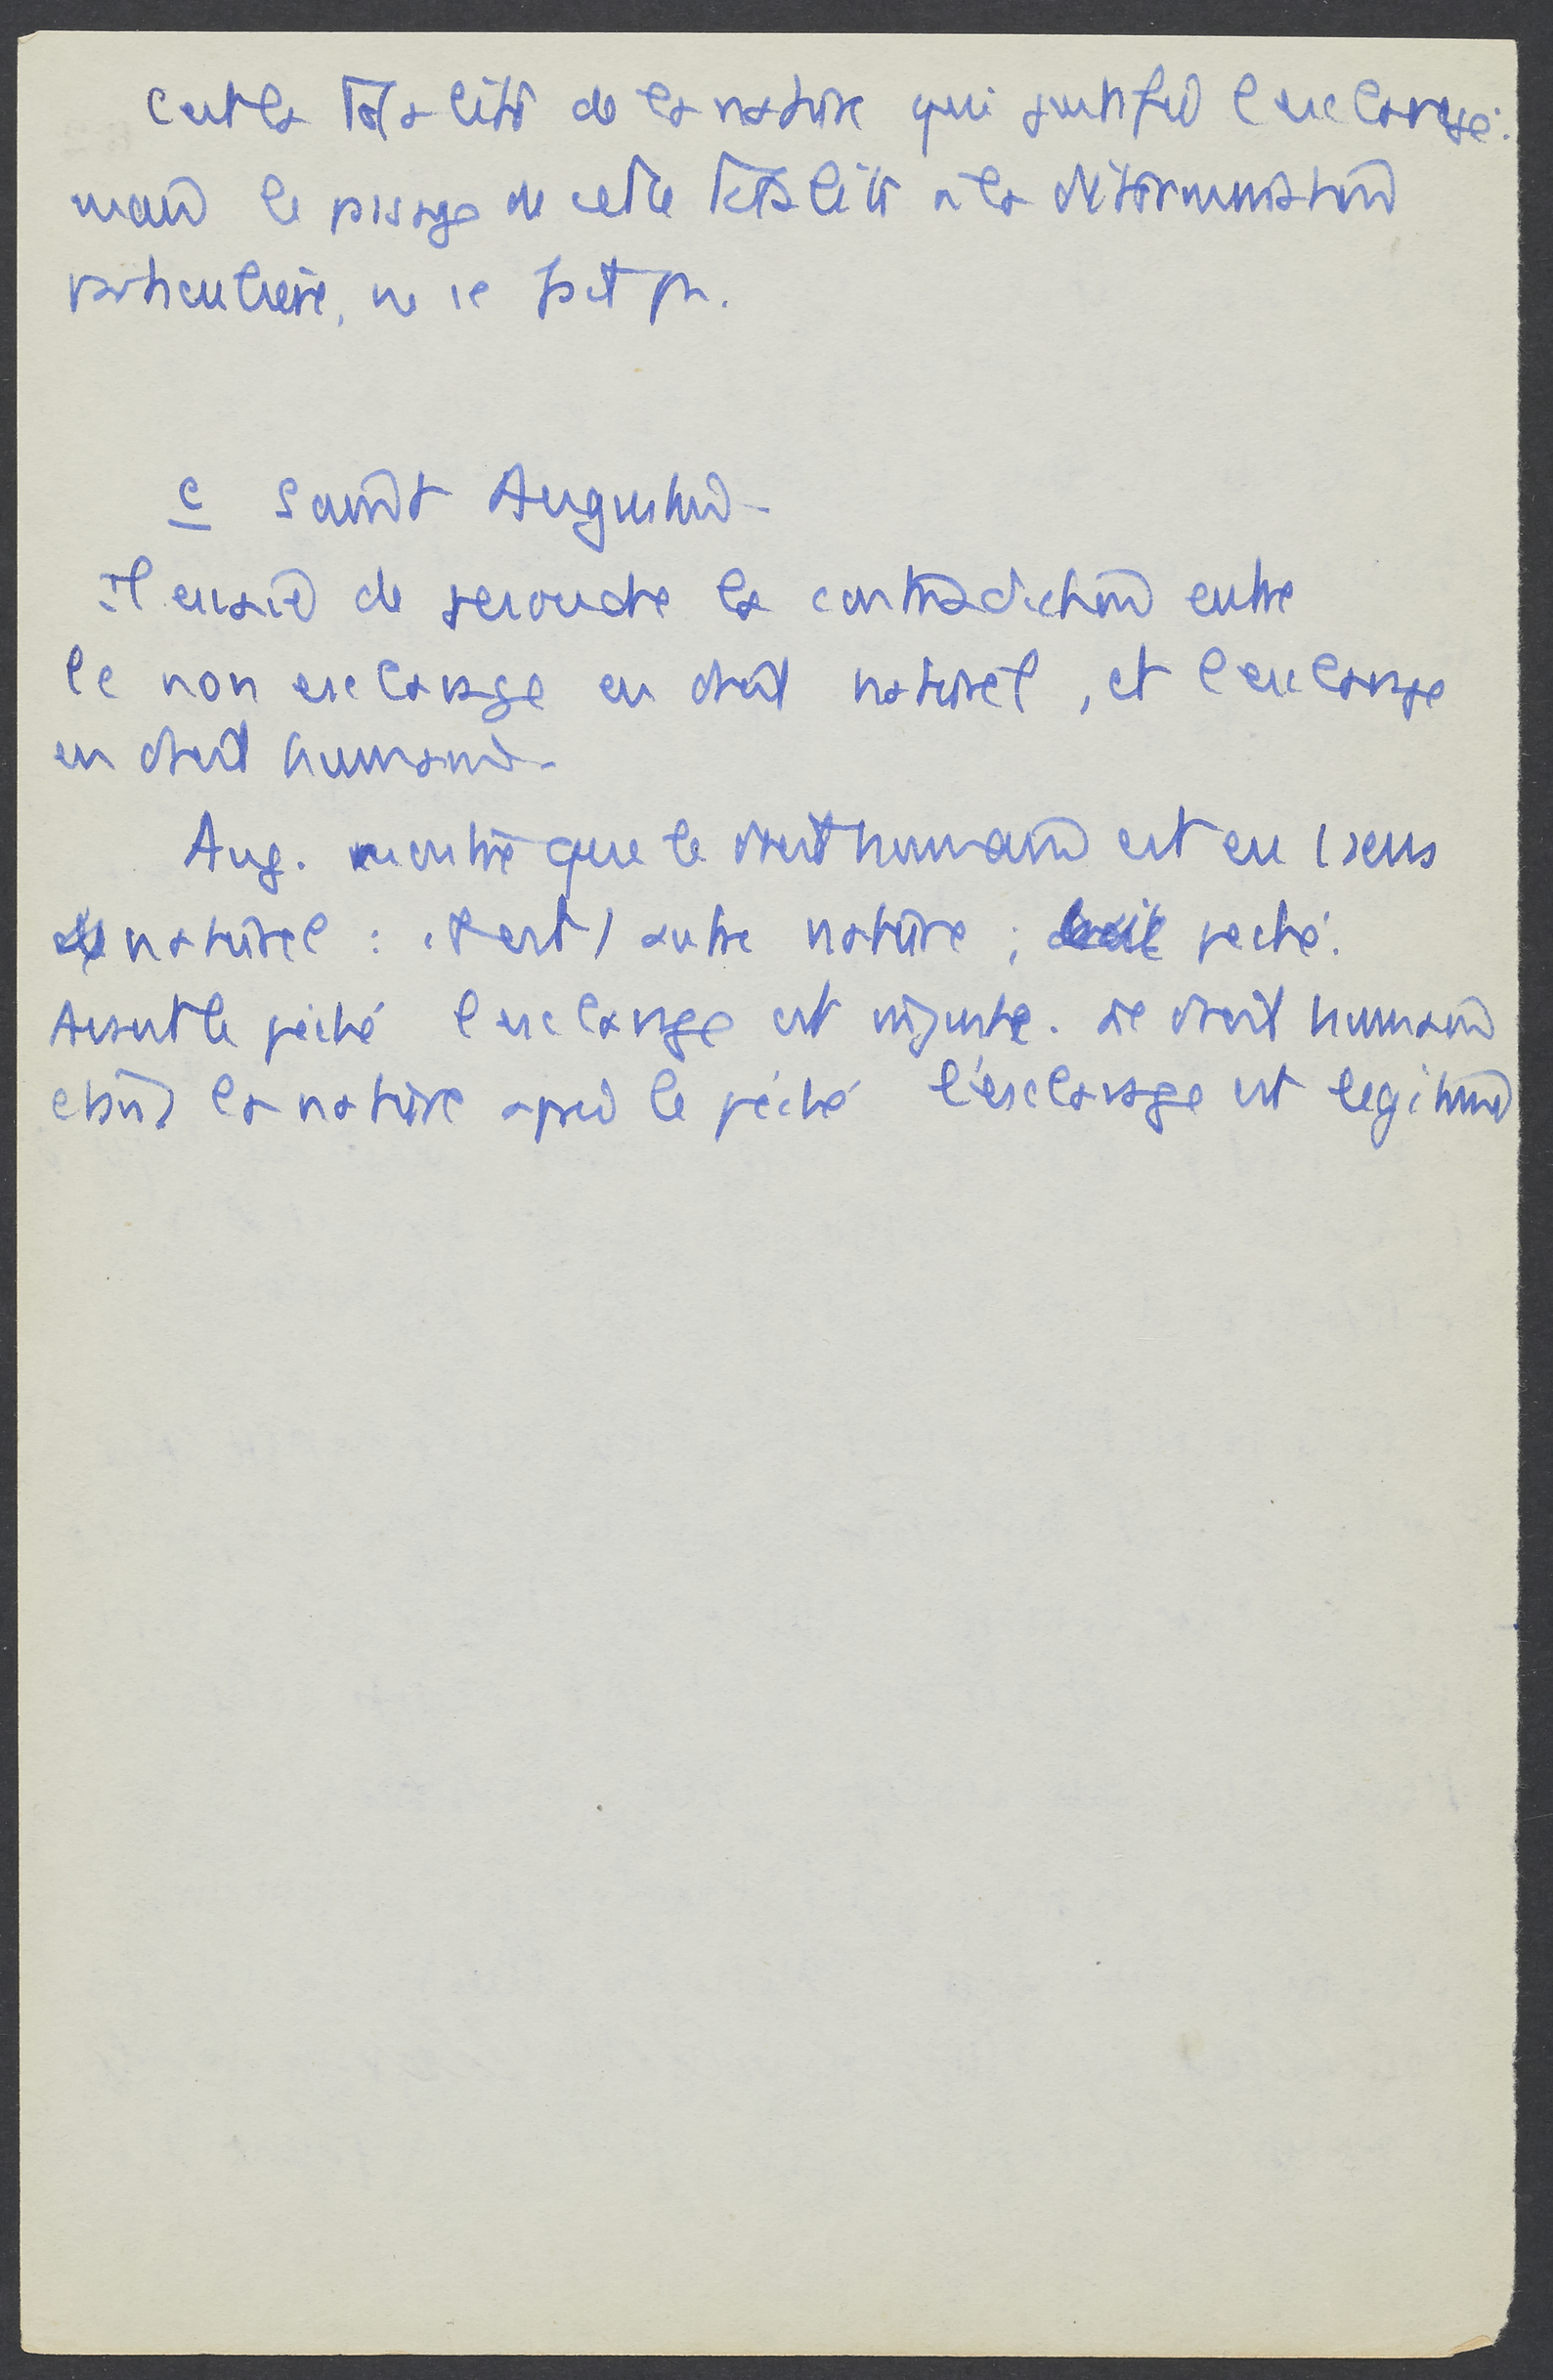 C'est la totalité de la nature qui justifie l'esclavage :
mais le passage de cette totalité à la détermination
particulière, ne se fait pas.
c Saint Augustin -
Il essaie de résoudre la contradiction entre
le non esclavage en droit naturel, et l'esclavage
en droit humain -
Aug. montre que le droit humain est en 1 sens
naturel : c'est 1 autre nature ; péché.
Avant le péché l'esclavage est injuste. de droit humain
dans la nature après le péché l'esclavage est légitime